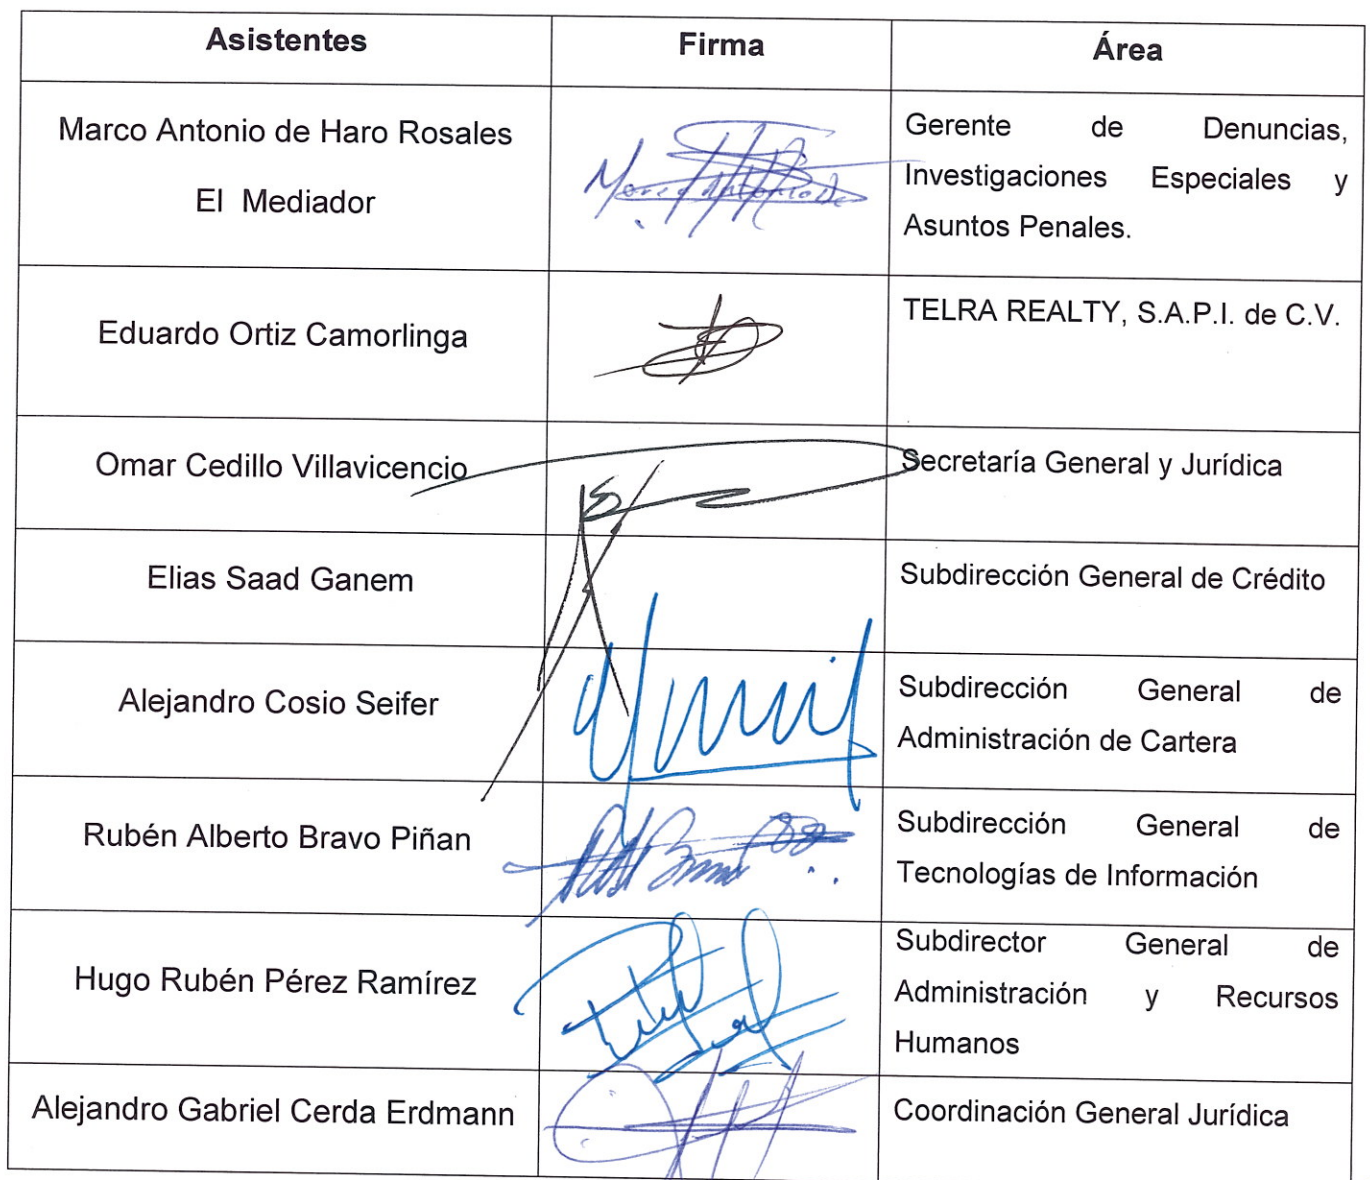 Asistentes Firma Área
Marco Antonio de Haro Rosales
El Mediador
Gerente de Denuncias,
Investigaciones Especiales y
Asuntos Penales.
Eduardo Ortiz Camorlinga
TELRA REALTY, S.A.P.I. de C.V.
Omar Cedillo Villavicencio
Secretaría General y Jurídica
Elias Saad Ganem
Subdirección General de Crédito
Alejandro Cosio Seifer
Subdirección General de
Administración de Cartera
Rubén Alberto Bravo Piñan
Subdirección General de
Tecnologías de Información
Hugo Rubén Pérez Ramírez
Subdirector General de
Administración y Recursos
Humanos
Alejandro Gabriel Cerda Erdmann
Coordinación General Jurídica